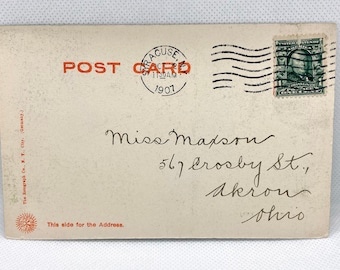 POST CARD
SYRACUSE, N.
11 AM
1907
Miss Maxson
567 Crosby St.,
Akron
Ohio
This side for the Address.
The Rotograph Co., N. Y. City. (Germany.)